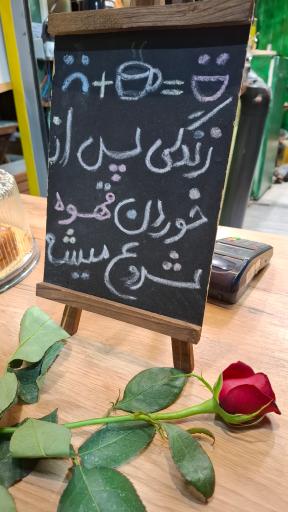 زندگی پس از
خوردن قهوه
شروع میشه